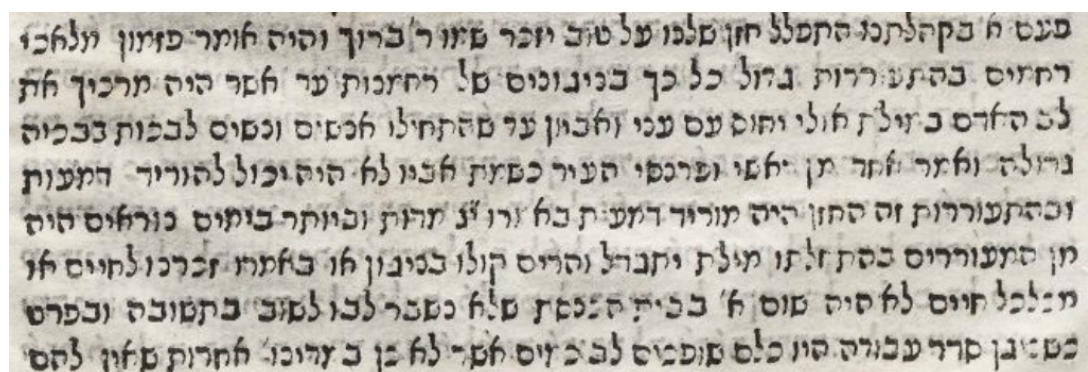 פעם א' בקהלתנו התפלל חזן שלנו על טוב יזכר שמו ר' ברוך והיה אומר פזמון מלאכי
רחמים בהתעוררות גדול כל כך בניגונים של רחמנות עד אשר היה מרכיך את
לב האדם במילת אולי יחוס עם עני ואביון עד שהתחילו אנשים ונשים לבכות בבכיה
גדולה ואמר אחד מן ראשי ופרנסי העיר כשמת אביו לא היה יכול להוריד דמעות
ובהתעוררות זה החזן היה מוריד דמעות וביותר בימים נוראים היה
מן המעוררים בהתחלתו מילת יתגדל והרים קולו בניגון או באמרו זכרנו לחיים או
מכלכל חיים לא היה שום א' בבית הכנסת שלא נשבר לבו לשוב בתשובה ובפרט
כשניגן סדר עבודה היו כלם שופכים לב כמים אשר לא כן במדינו' אחרות שאין להם